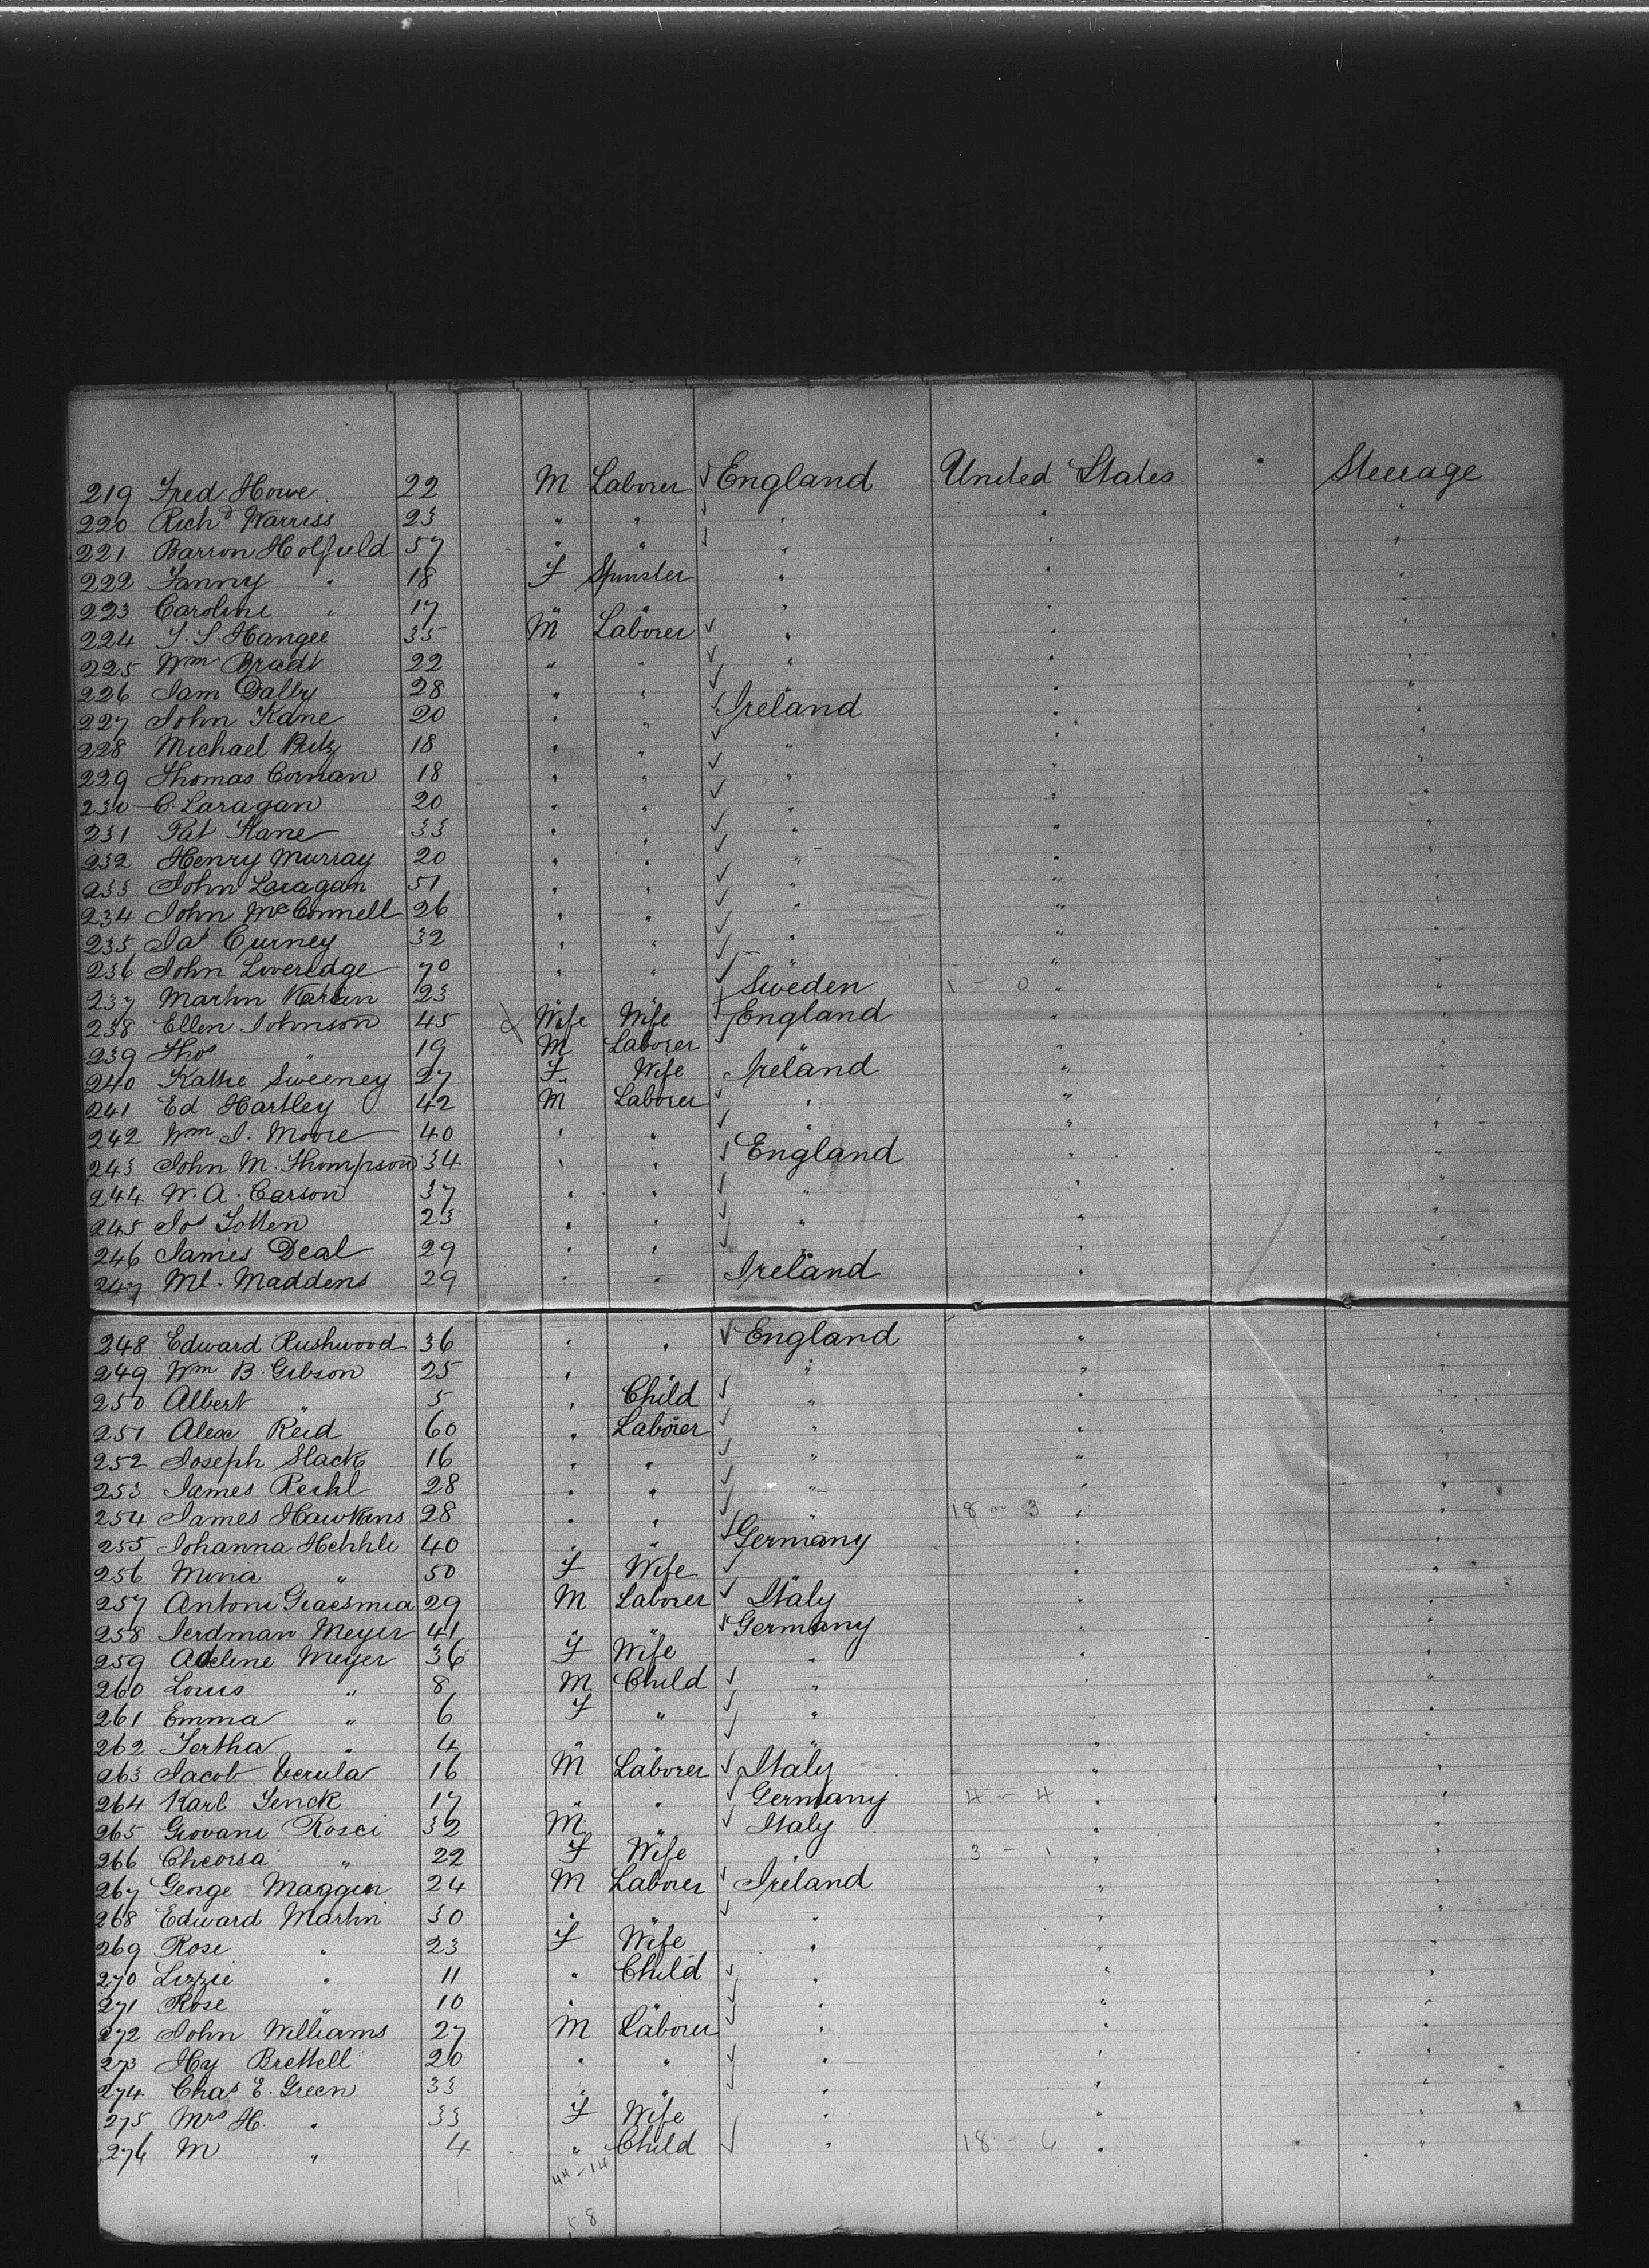 219 Fred Howe 22 M Laborer √ England United States " Steerage
220 Richd Warriss 23 " " √ " " "
221 Barron Holfield 57 " " √ " " "
222 Fanny " 18 F Spinster " " "
223 Caroline " 17 " " " " "
224 35 M Laborer √ " " "
225 Wm Bradt 22 " " √ " " "
226 Sam Dalby 28 " " √ " " "
227 John Kane 20 " " √ Ireland " "
228 Michael 18 " " √ " " "
229 Thomas Cornan 18 " " √ " " "
230 C. Laragan 20 " " √ " " "
231 Pat Kane 33 " " √ " " "
232 Henry Murray 20 " " √ " " "
233 John Laragan 51 " " √ " " "
234 John McConnell 26 " " √ " " "
235 Jas Curney 32 " " √ " " "
236 John Loveridge 70 " " √ " " "
237 Martin 23 " " √ Sweden 1 - 0 " "
238 Ellen Johnson 45 Wife Wife √ England " "
239 Thos " 19 M Laborer √ " " "
240 Kattie Sweeney 27 F Wife Ireland " "
241 Ed Hartley 42 M Laborer √ " " "
242 Wm J. Moore 40 " " √ " " "
243 John M. Thompson 34 " " √ England " "
244 W. A. Carson 37 " " √ " " "
245 Jos Totten 23 " " √ " " "
246 James Deal 29 " " √ " " "
247 Ml. Maddens 29 " " Ireland " "
248 Edward Rushwood 36 " " √ England " "
249 Wm B. Gibson 25 " " " " "
250 Albert " 5 " Child √ " " "
251 Alex Reid 60 " Laborer √ " " "
252 Joseph Slack 16 " " √ " " "
253 James 28 " " √ " " "
254 James Hawkins 28 " " √ " 18 - 3 " "
255 Johanna 40 " " √ Germany " "
256 Mina " 50 F Wife √ " " "
257 Antoni 29 M Laborer √ Italy " "
258 Meyer 41 " " √ Germany " "
259 Adeline Meyer 36 F Wife " " "
260 Louis " 8 M Child √ " " "
261 Emma " 6 F " √ " " "
262 Tertha " 4 " " √ " " "
263 Jacob Verula 16 M Laborer √ Italy " "
264 Karl 17 " " √ Germany 4 - 4 " "
265 Giovani Rosci 32 M " √ Italy " "
266 Cheorsa " 22 F Wife " 3 - 1 " "
267 George Maggin 24 M Laborer √ Ireland " "
268 Edward Martin 30 " " √ " " "
269 Rose " 23 F Wife " " "
270 Lizzie " 11 " Child √ " " "
271 Rose " 10 " " √ " " "
272 John Williams 27 M Laborer √ " " "
273 Hy Brettell 20 " " √ " " "
274 Chas E. Green 33 " " √ " " "
275 Mrs H. " 33 F Wife " " "
276 M " 4 " Child √ " 18 - 6 " "
44 - 14
58